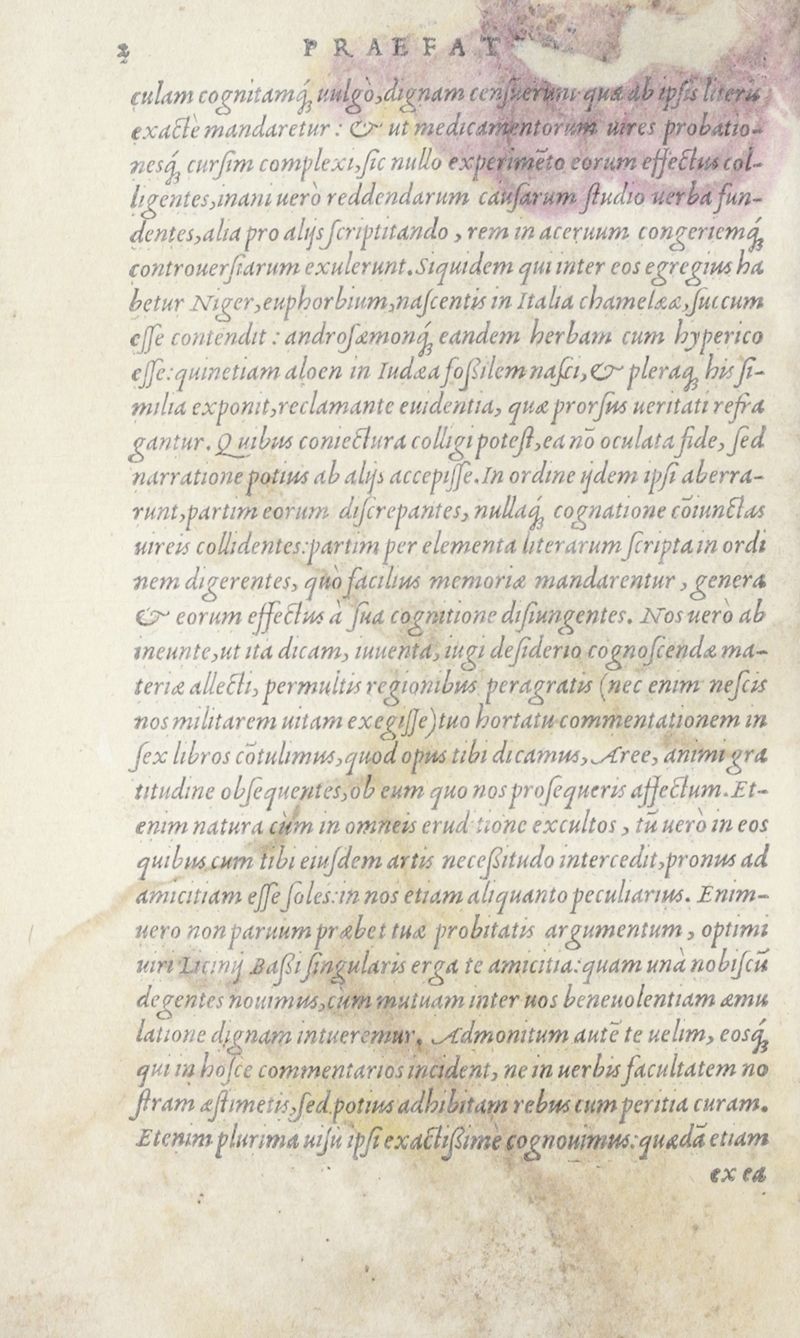 2 PRAEFAT
culam cognitamq́; uulgò, dignam censuerunt quæ ab ipsis literis
exactè mandaretur: & ut medicamentorum uires probatio-
nesq́; cursim complexi, sic nullo experimẽto eorum effectus col-
ligentes, inani uerò reddendarum causarum studio uerba fun-
dentes, alia pro alijs scriptitando, rem in aceruum congeriemq́;
controuersiarum exulerunt. Siquidem qui inter eos egregius ha
betur Niger, euphorbium, nascentis in Italia chamelææ, succum
esse contendit: androsæmonq́; eandem herbam cum hyperico
esse: quinetiam aloen in Iudæa foßilem nasci, & pleraq; his si-
milia exponit, reclamante euidentia, quæ prorsus ueritati refra
gantur. Quibus coniectura colligi potest, ea nõ oculata fide, sed
narratione potius ab alijs accepisse. In ordine ijdem ipsi aberra-
runt, partim eorum discrepantes, nullaq́; cognatione cõiunctas
uireis collidentes: partim per elementa literarum scripta in ordi
nem digerentes, quò facilius memoriæ mandarentur, genera
& eorum effectus à sua cognitione disiungentes. Nos uerò ab
ineunte, ut ita dicam, iuuenta, iugi desiderio cognoscendæ ma-
teriæ allecti, permultis regionibus peragratis (nec enim nescis
nos militarem uitam exegisse) tuo hortatu commentationem in
sex libros cõtulimus, quod opus tibi dicamus, Aree, animi gra
titudine obsequentes, ob eum quo nos prosequeris affectum. Et-
enim natura cùm in omneis erud tione excultos, tũ uerò in eos
quibus cum tibi eiusdem artis neceßitudo intercedit, pronus ad
amicitiam esse soles: in nos etiam aliquanto peculiarius. Enim-
uero non paruum præbet tuæ probitatis argumentum, optimi
uiri Licinij Baßi singularis erga te amicitia: quam unà nobiscũ
degentes nouimus, cùm mutuam inter uos beneuolentiam æmu
latione dignam intueremur. Admonitum autẽ te uelim, eosq́;
qui in hosce commentarios incident, ne in uerbis facultatem no
stram æstimetis, sed potius adhibitam rebus cum peritia curam.
Etenim plurima uisu ipsi exactißimè cognouimus: quædã etiam
ex ea